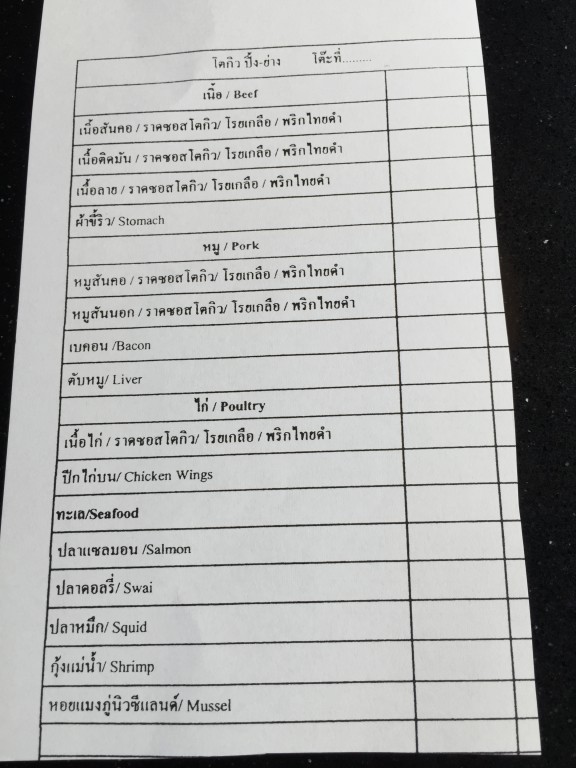 โตกิว ปิ้ง-ย่าง โต๊ะที่.........
เนื้อ / Beef
เนื้อสันคอ / ราดซอสโตกิว/ โรยเกลือ / พริกไทยดำ
เนื้อติดมัน / ราดซอสโตกิว/ โรยเกลือ / พริกไทยดำ
เนื้อลาย / ราดซอสโตกิว/ โรยเกลือ / พริกไทยดำ
ผ้าขี้ริว/ Stomach
หมู / Pork
หมูสันคอ / ราดซอสโตกิว/ โรยเกลือ / พริกไทยดำ
หมูสันนอก / ราดซอสโตกิว/ โรยเกลือ / พริกไทยดำ
เบคอน /Bacon
ตับหมู/ Liver
ไก่ / Poultry
เนื้อไก่ / ราดซอสโตกิว/ โรยเกลือ / พริกไทยดำ
ปีกไก่บน/ Chicken Wings
ทะเล/Seafood
ปลาแซลมอน /Salmon
ปลาดอลรี่/ Swai
ปลาหมึก/ Squid
กุ้งแม่น้ำ/ Shrimp
หอยแมงภู่นิวซีแลนด์/ Mussel